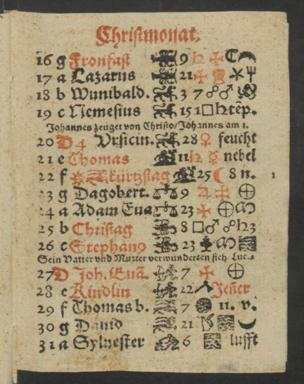 Christmonat.
16 g Fronfast 9 ♄ ☾
17 a Lazarus 21
18 b Wunibald. 3 7 ☍♂
19 c Nemesius 15 1 □♄ tēp.
Johannes zeuget von Christo/Johannes am 1.
20 D 4 Ursicin. 28 ♀ feucht
21 e Thomas 11 ♄ nebel
22 f Kürtzstag 25 ☾ 8 n.
23 g Dagobert. 9 ♃
24 a Adam Eva 23
25 b Christag 8 □♂ ☍♄ 23
26 c Stephanꝰ 23
Sein Vatter und Mutter verwunderten sich Luc. 2
27 D Joh. Euā. 7
28 e Kindlin 22 Jeñer
29 f Thomas b. 7 11. v.
30 g David 21
31 a Sylvester 6 lufft